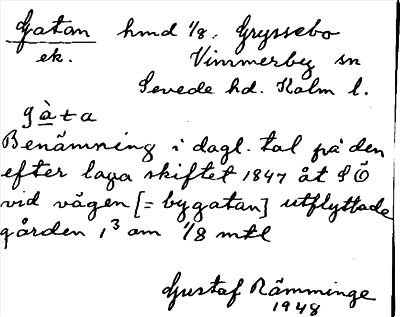 Gatan hmd 1/8, Gryssebo
ek. Vimmerby sn
Sevede hd. Kalm l.
gàta
Benämning i dagl. tal på den
efter laga skiftet 1847 åt SÖ
vid vägen [= bygatan] utflyttade
gården 1³ om 1/8 mtl
Gustaf Rämminge
1948